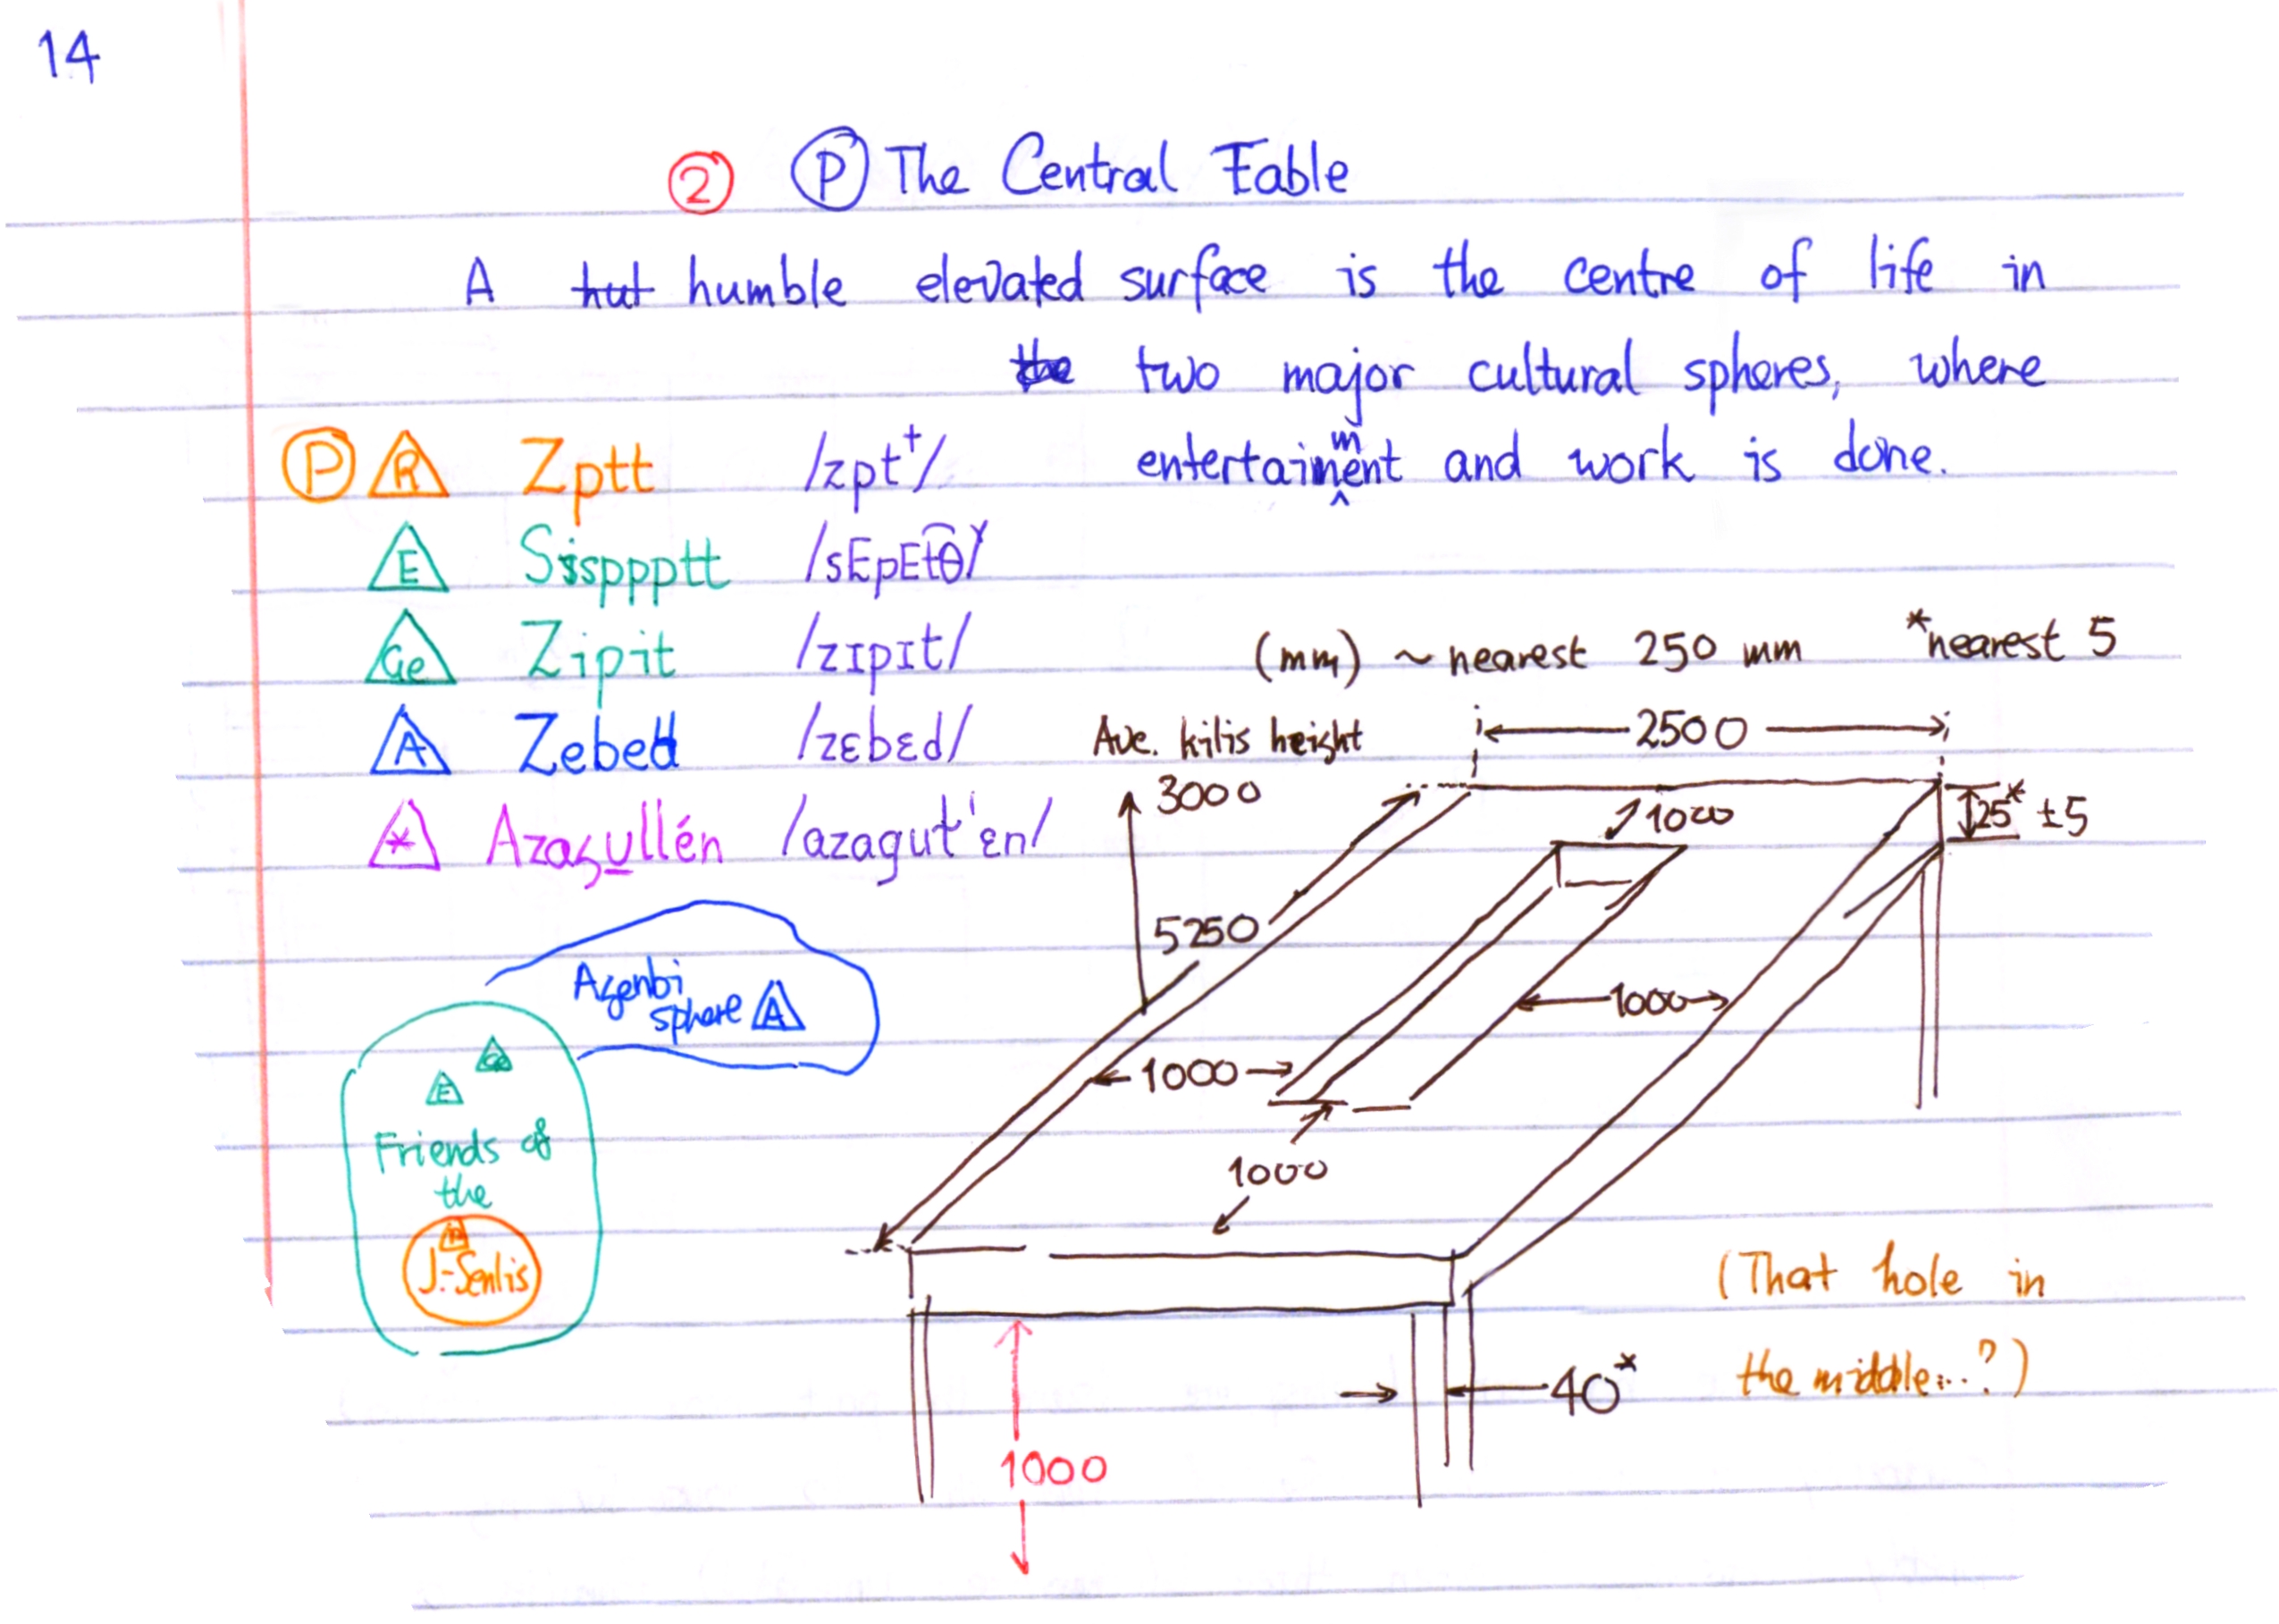 14
2 P The Central Table
A hut humble elevated surface is the centre of life in
the two major cultural spheres, where
entertainment and work is done.
P R Zptt /zptᐩ/
E Sisppptt /sEpEt͡θˠ/
Ge Zipit /zɪpɪt/
A Zebed /zɛbɛd/
* Azagullén /azagut'ɛn/
(mm) ~ nearest 250 mm *nearest 5
Ave. kilis height
3000
2500
1000
25* ±5
5250
1000
1000
1000
40*
1000
Agenbi
sphere A
Ge
E
Friends of
the
R
J.-Senlis
(That hole in
the middle...?)